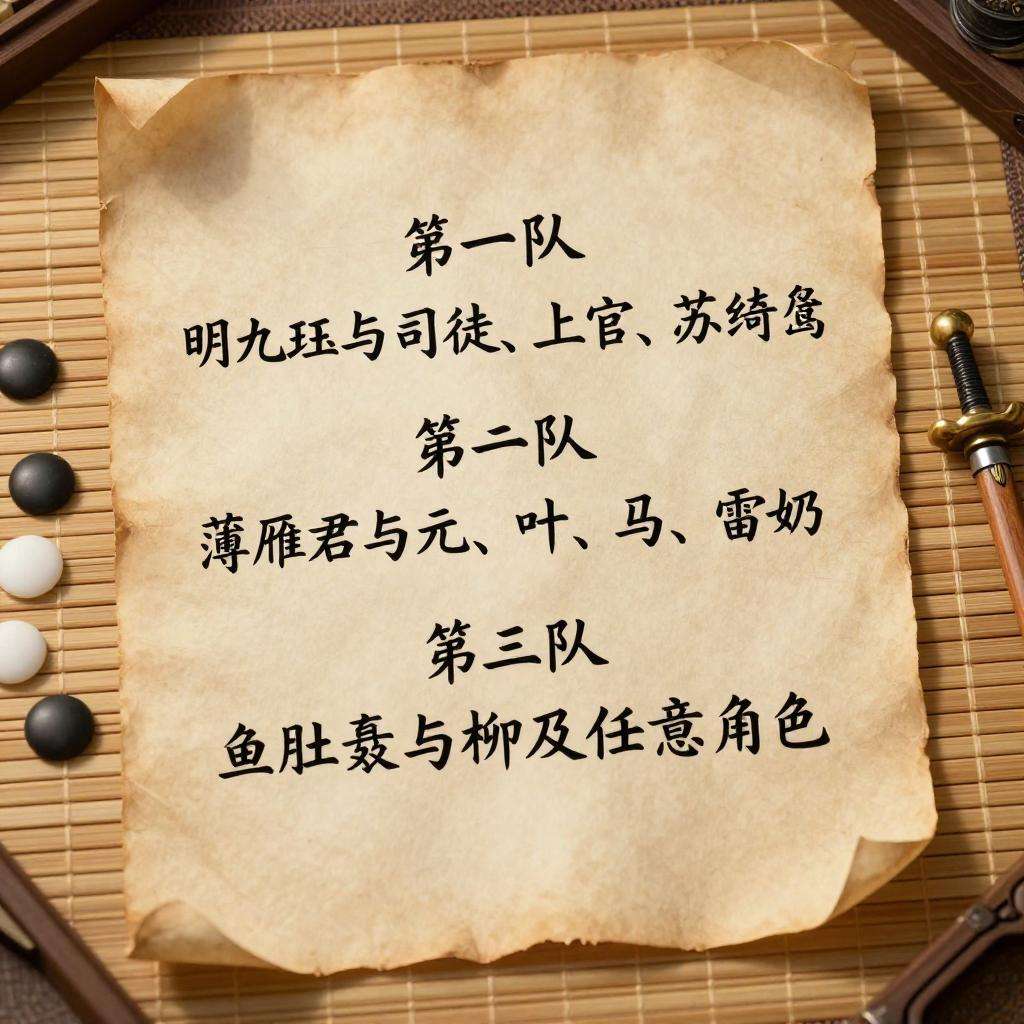 第一队
明九珏与司徒、上官、苏绮
第二队
薄雁君与元、叶、马、雷奶
第三队
鱼肚与柳及任意角色